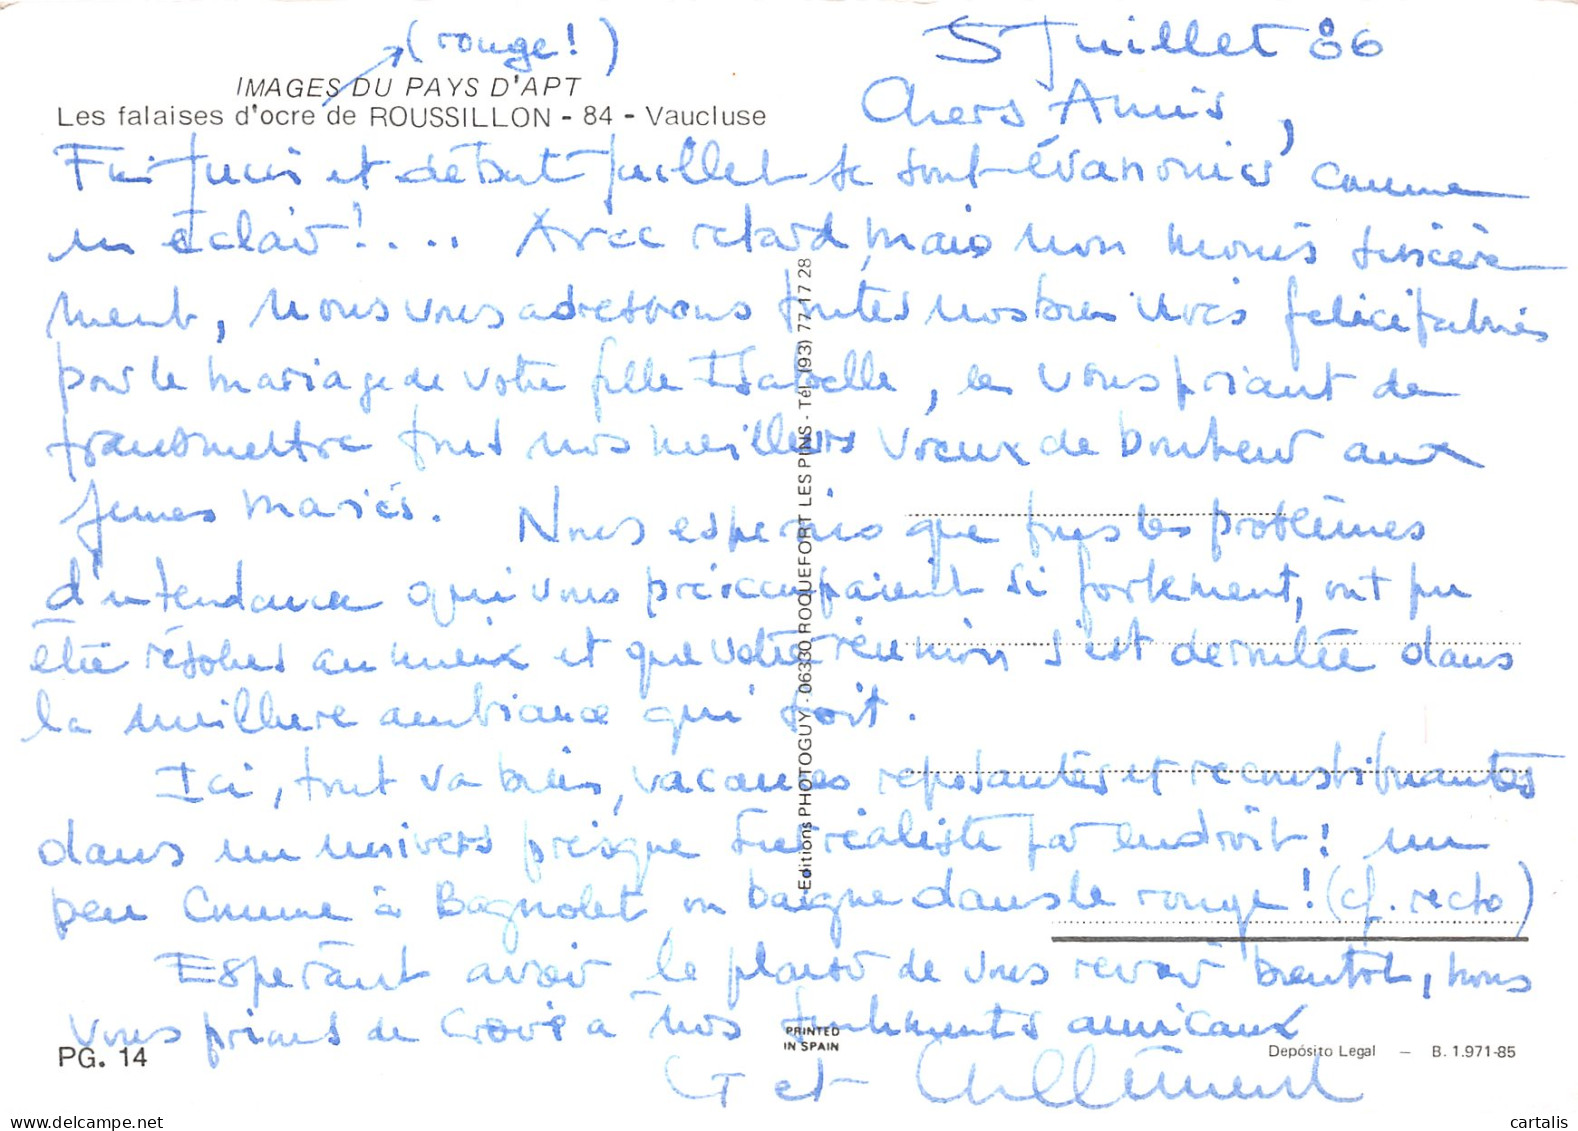 (rouge!)
5 Juillet 86
IMAGES DU PAYS D'APT
Les falaises d'ocre de ROUSSILLON - 84 - Vaucluse
Chers Amis,
Fin Juin et début Juillet se sont évanouies comme
un éclair!.... Avec retard, mais non moins sincère
ment, nous vous adressons toutes nos bien vives félicitations
pour le mariage de votre fille Isabelle, en vous priant de
transmettre tous nos meilleurs voeux de bonheur aux
jeunes mariés. Nous espérons que tous les problèmes
d'intendance qui vous préoccupaient si fortement, ont pu
être résolus au mieux et que votre réunion s'est déroulée dans
la meilleure ambiance qui soit.
Ici, tout va bien, vacances reposantes et reconstituantes
dans un univers presque surréaliste par endroit! un
peu comme à Bagnolet on baigne dans le rouge! (cf. recto)
Espérant avoir le plaisir de vous revoir bientôt, nous
vous prions de croire à nos sentiments amicaux
G et
Editions PHOTOGUY - 06330 ROQUEFORT LES PINS - Tél. (93) 77 17 28
PRINTED
IN SPAIN
PG. 14
Depósito Legal - B. 1.971-85
cartalis